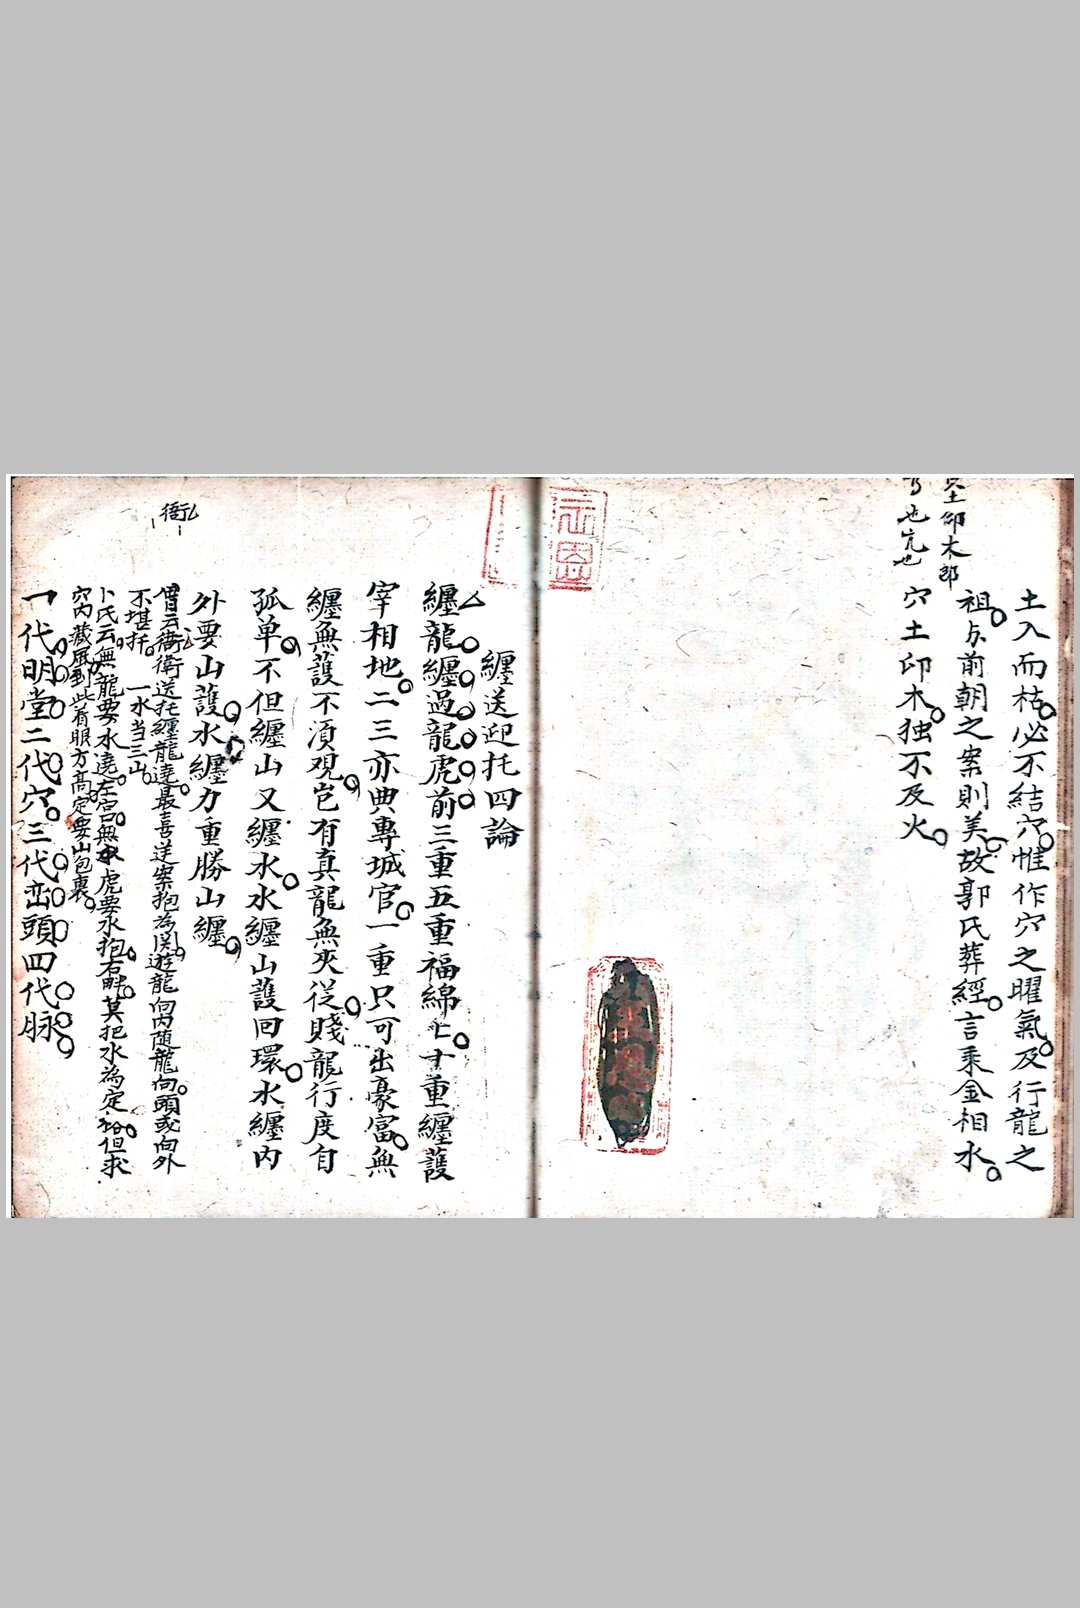 土入而枯必不結穴惟作穴之曜氣及行龍之
祖与前朝之案則美故郭氏葬經言乘金相水
穴土印木独不及火
穴土印木郎
也亢也
纏送迎托四論
纏龍纏過龍虎前三重五重福綿七十重纏護
宰相地二三亦典專城官一重只可出豪富無
纏無護不湏观岂有真龍無夾従賤龍行度自
孤单不但纏山又纏水水纏山護回環水纏内
外要山護水纏力重勝山纏
衙
曾云衛送托纏龍遶最喜逆案抱為関遊龍向内随龍向頭或向外
不堪托一水当三山
卜氏云無龍要水遶左宮無虎要水抱右畔莫把水為定格但求
穴内藏風到此着眼方高定要山包裹
一代明堂二代穴三代峦頭四代脉